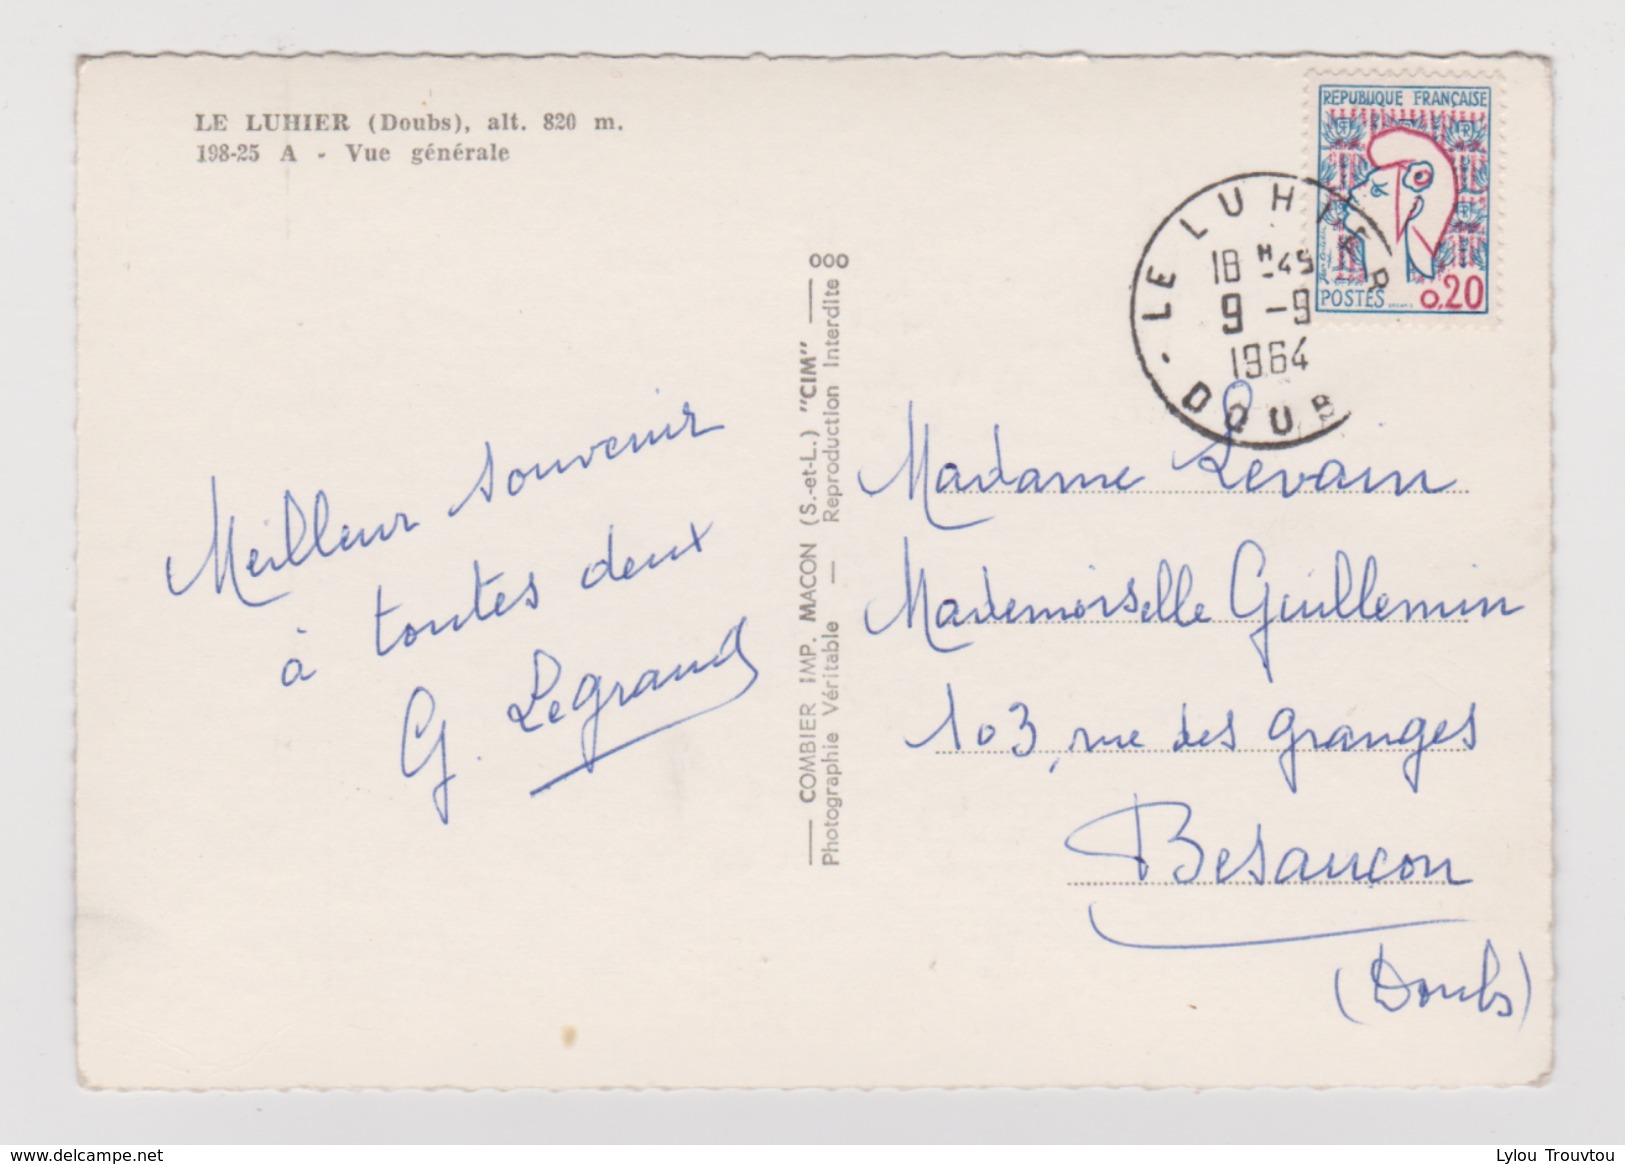 LE LUHIER (Doubs), alt. 820 m.
198-25 A - Vue générale
Meilleur souvenir
à toutes deux
G. Legrand
COMBIER IMP. MACON (S.-et-L.) "CIM"
Photographie Véritable — Reproduction Interdite
000
REPUBLIQUE FRANÇAISE
POSTES 0,20
LE LUHIER
18 H 45
9 - 9
1964
DOUB
Madame Levain
Mademoiselle Guillemin
103, rue des Granges
Besançon
(Doubs)
www.delcampe.net
Lylou Trouvtou